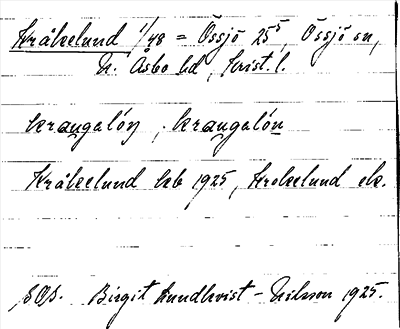 Kråkelund 1/48 = Össjö 25⁵, Össjö sn,
N. Åsbo hd, Krist. l.
kraŋgalón, kraŋgalón
Kråkelund kb 1925, Krokelund ek.
SOS. Birgit Lundkvist-Nilsson 1925.